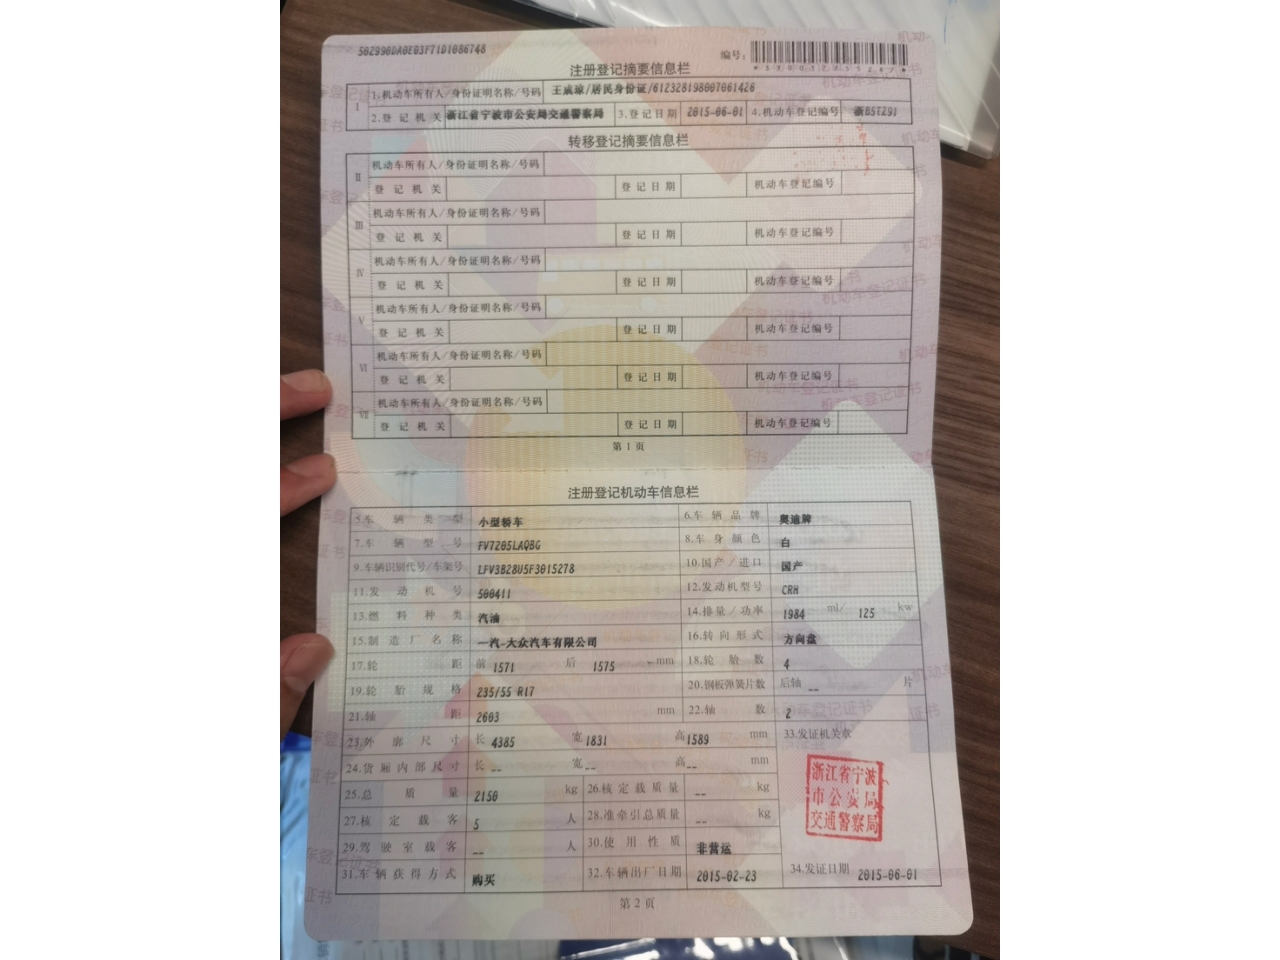 50Z990DA0E03F71D1086748
编号:
注册登记摘要信息栏
I 1.机动车所有人/身份证明名称/号码 王成琼/居民身份证/612328198007061426
2.登记机关 浙江省宁波市公安局交通警察局 3.登记日期 2015-06-01 4.机动车登记编号
转移登记摘要信息栏
II 机动车所有人/身份证明名称/号码
登记机关 登记日期 机动车登记编号
III 机动车所有人/身份证明名称/号码
登记机关 登记日期 机动车登记编号
IV 机动车所有人/身份证明名称/号码
登记机关 登记日期 机动车登记编号
V 机动车所有人/身份证明名称/号码
登记机关 登记日期 机动车登记编号
VI 机动车所有人/身份证明名称/号码
登记机关 登记日期 机动车登记编号
VII 机动车所有人/身份证明名称/号码
登记机关 登记日期 机动车登记编号
第1页
注册登记机动车信息栏
5.车辆类型 小型轿车 6.车辆品牌 奥迪牌
7.车辆型号 FV7205LAQBG 8.车身颜色 白
9.车辆识别代号/车架号 LFV3B28U5F3015278 10.国产/进口 国产
11.发动机号 500411 12.发动机型号 CRH
13.燃料种类 汽油 14.排量/功率 1984 ml/ 125 kw
15.制造厂名称 一汽-大众汽车有限公司 16.转向形式 方向盘
17.轮距 前 1571 后 1575 mm 18.轮胎数 4
19.轮胎规格 235/55 R17 20.钢板弹簧片数 后轴 -- 片
21.轴距 2603 mm 22.轴数 2
23.外廓尺寸 长 4385 宽 1831 高 1589 mm 33.发证机关章
24.货厢内部尺寸 长 -- 宽 -- 高 -- mm
浙江省宁波
市公安局
交通警察局
25.总质量 2150 kg 26.核定载质量 -- kg
27.核定载客 5 人 28.准牵引总质量 -- kg
29.驾驶室载客 -- 人 30.使用性质 非营运
31.车辆获得方式 购买 32.车辆出厂日期 2015-02-23 34.发证日期 2015-06-01
第2页